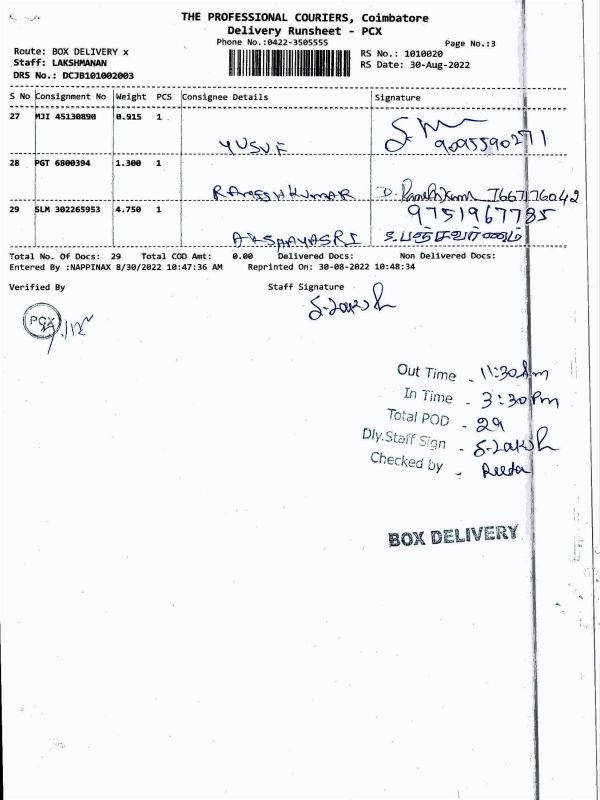 THE PROFESSIONAL COURIERS, Coimbatore
Delivery Runsheet - PCX
Phone No.:0422-3505555
Page No.:3
Route: BOX DELIVERY x
RS No.: 1010020
Staff: LAKSHMANAN
RS Date: 30-Aug-2022
DRS No.: DCJB101002003
S No Consignment No Weight PCS Consignee Details Signature
27 MJI 45130890 0.915 1
YUSUF 9095590271
28 PGT 6800394 1.300 1
RAMESHKUMAR D. 7667176042
29 SLM 302265953 4.750 1 9751967785
AKSHAYASRI S.பஞ்சவர்ணம்
Total No. Of Docs: 29 Total COD Amt: 0.00 Delivered Docs: Non Delivered Docs:
Entered By :NAPPINAX 8/30/2022 10:47:36 AM Reprinted On: 30-08-2022 10:48:34
Verified By Staff Signature
PCX S.Laksh
Out Time - 11:30 Am
In Time - 3:30 Pm
Total POD - 29
Dly.Staff Sign - S.Laksh
Checked by - Reeta
BOX DELIVERY